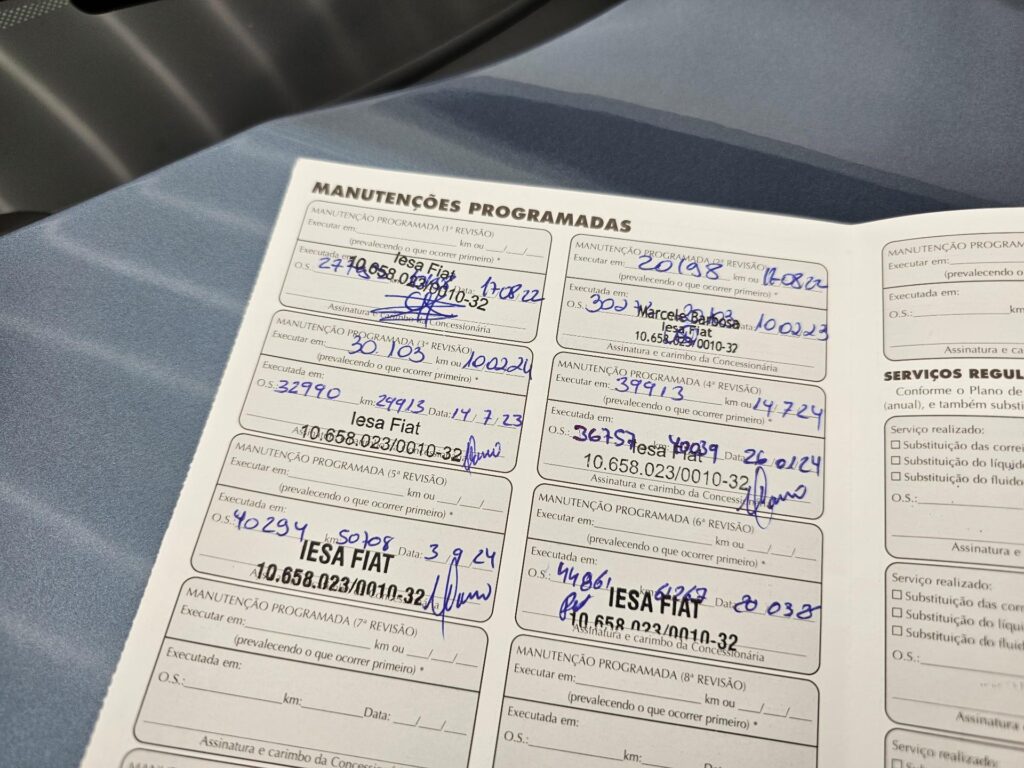 MANUTENÇÕES PROGRAMADAS
MANUTENÇÃO PROGRAMADA (1ª REVISÃO)
Executar em: km ou / /
(prevalecendo o que ocorrer primeiro) *
Executada em:
Iesa Fiat
O.S.: Data: 17 08 22
10.658.023/0010-32
Assinatura e carimbo da Concessionária
MANUTENÇÃO PROGRAMADA (2ª REVISÃO)
Executar em: 20198 km ou 17.08.22
(prevalecendo o que ocorrer primeiro) *
Executada em:
Marcele Barbosa
O.S.: Data: 10 02 23
Iesa Fiat
10.658.023/0010-32
Assinatura e carimbo da Concessionária
MANUTENÇÃO PROGRAMADA (3ª REVISÃO)
Executar em: 30.103 km ou 10.02.24
(prevalecendo o que ocorrer primeiro) *
Executada em:
O.S.: 32990 km: 29913 Data: 14 / 7 / 23
Iesa Fiat
10.658.023/0010-32
MANUTENÇÃO PROGRAMADA (4ª REVISÃO)
Executar em: 39913 km ou 14/7/24
(prevalecendo o que ocorrer primeiro) *
Executada em:
O.S.: 36757 km: 40039 Data: 26 01 24
Iesa Fiat
10.658.023/0010-32
Assinatura e carimbo da Concessionária
MANUTENÇÃO PROGRAMADA (5ª REVISÃO)
Executar em: km ou / /
(prevalecendo o que ocorrer primeiro) *
Executada em:
O.S.: 40294 km: Data: 3 / 9 / 24
IESA FIAT
10.658.023/0010-32
MANUTENÇÃO PROGRAMADA (6ª REVISÃO)
Executar em: km ou / /
(prevalecendo o que ocorrer primeiro) *
Executada em:
O.S.: 44861 km: 61267 Data:
IESA FIAT
10.658.023/0010-32
Assinatura e carimbo da Concessionária
MANUTENÇÃO PROGRAMADA (7ª REVISÃO)
Executar em: km ou / /
(prevalecendo o que ocorrer primeiro) *
Executada em:
O.S.: km: Data: / /
Assinatura e carimbo da Concessionária
MANUTENÇÃO PROGRAMADA (8ª REVISÃO)
Executar em: km ou
(prevalecendo o que ocorrer primeiro) *
Executada em:
O.S.: km:
MANUTENÇÃO PROGRAM
Executar em:
(prevalecendo
Executada em:
O.S.:
Assinatura e ca
SERVIÇOS REGUL
Conforme o Plano de
(anual), e também substi
Serviço realizado:
Substituição das corre
Substituição do líquido
Substituição do fluido
O.S.:
Assinatura e
Serviço realizado:
Substituição das corr
Substituição do líqui
Substituição do fluid
O.S.:
Assinatura e
Serviço realizado: